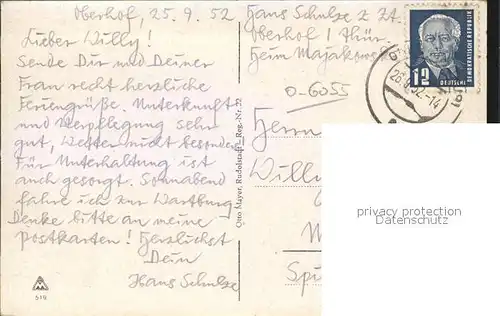 Oberhof, 25.9.52
Lieber Willy!
Sende Dir und Deiner
Frau recht herzliche
Feriengrüße. Unterkunft
und Verpflegung sehr
gut, Wetter nicht besonders
Für Unterhaltung ist
auch gesorgt. Sonnabend
fahre ich zur Wartburg
Denke bitte an meine
Postkarten! Herzlichst
Dein
Hans Schulze
519
Otto Mayer, Rudolstadt - Reg.-Nr. 22
Hans Schulze z. Zt.
Oberhof / Thür.
Heim Majakows
0-6055
Herrn
Willy
M
Sp
12
DEUTSCHE
DEMOKRATISCHE REPUBLIK
52-14
privacy protection
Datenschutz